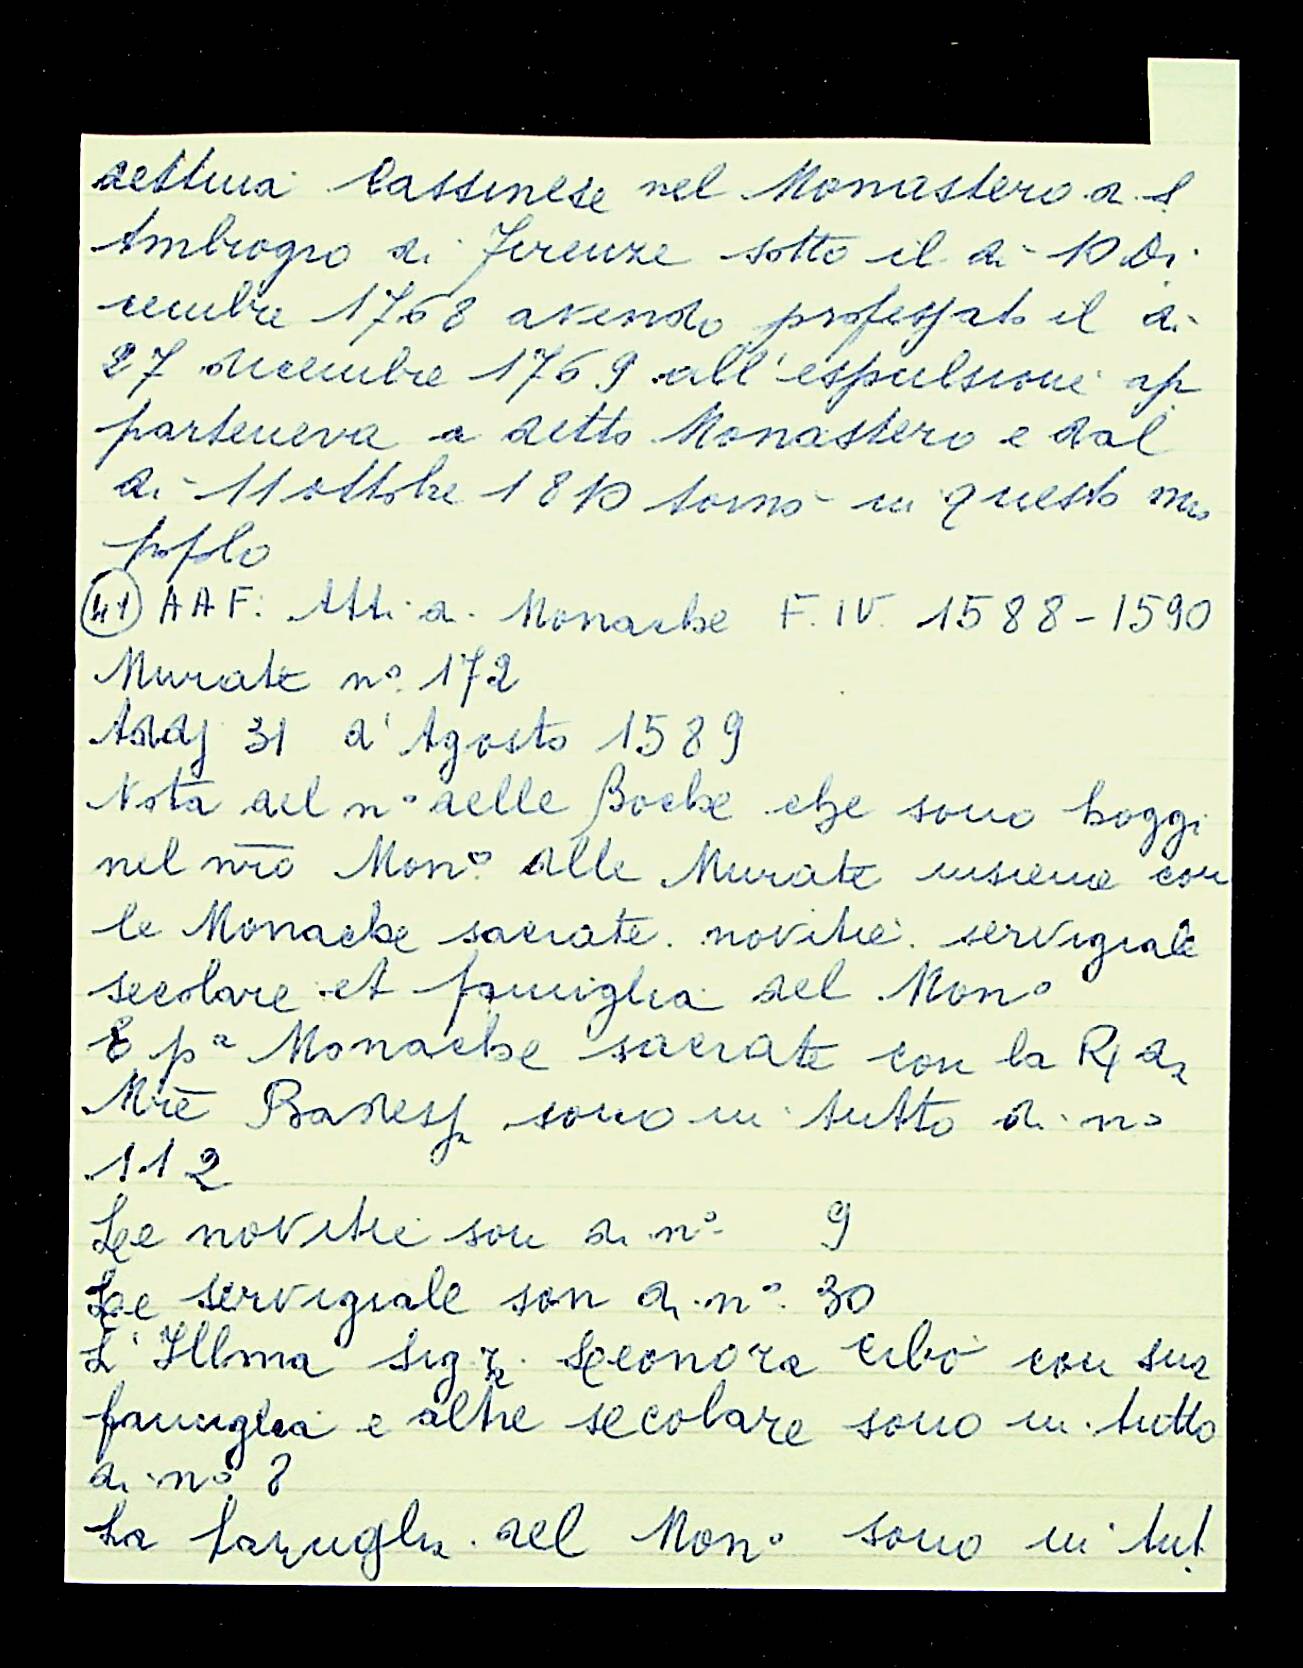 dettina Cassinese nel Monastero di S.
Ambrogio di Firenze sotto il dì 10 Di
cembre 1768 avendo professato il dì
27 dicembre 1769 all'espulsione ap
parteneva a detto Monastero e dal
dì 11 ottobre 1810 tornò in questo mio
popolo
(41) AAF. Atti di Monache F. IV. 1588-1590
Murate n° 172
Addj 31 d'Agosto 1589
Nota del n° delle Bocke che sono hoggi
nel nro Mon° delle Murate insieme con
le Monache sacrate. novitie. servigiale
secolare et famiglia del Mon°
E pa Monache sacrate con la Rda
Mre Badessa sono in tutto di n°
112
Le novitie son di n° 9
Le servigiale son di n° 30
L'Illma Sigra Leonora Cibò con sua
famiglia e altre secolare sono in tutto
di n° 8
La famiglia del Mon° sono in tut